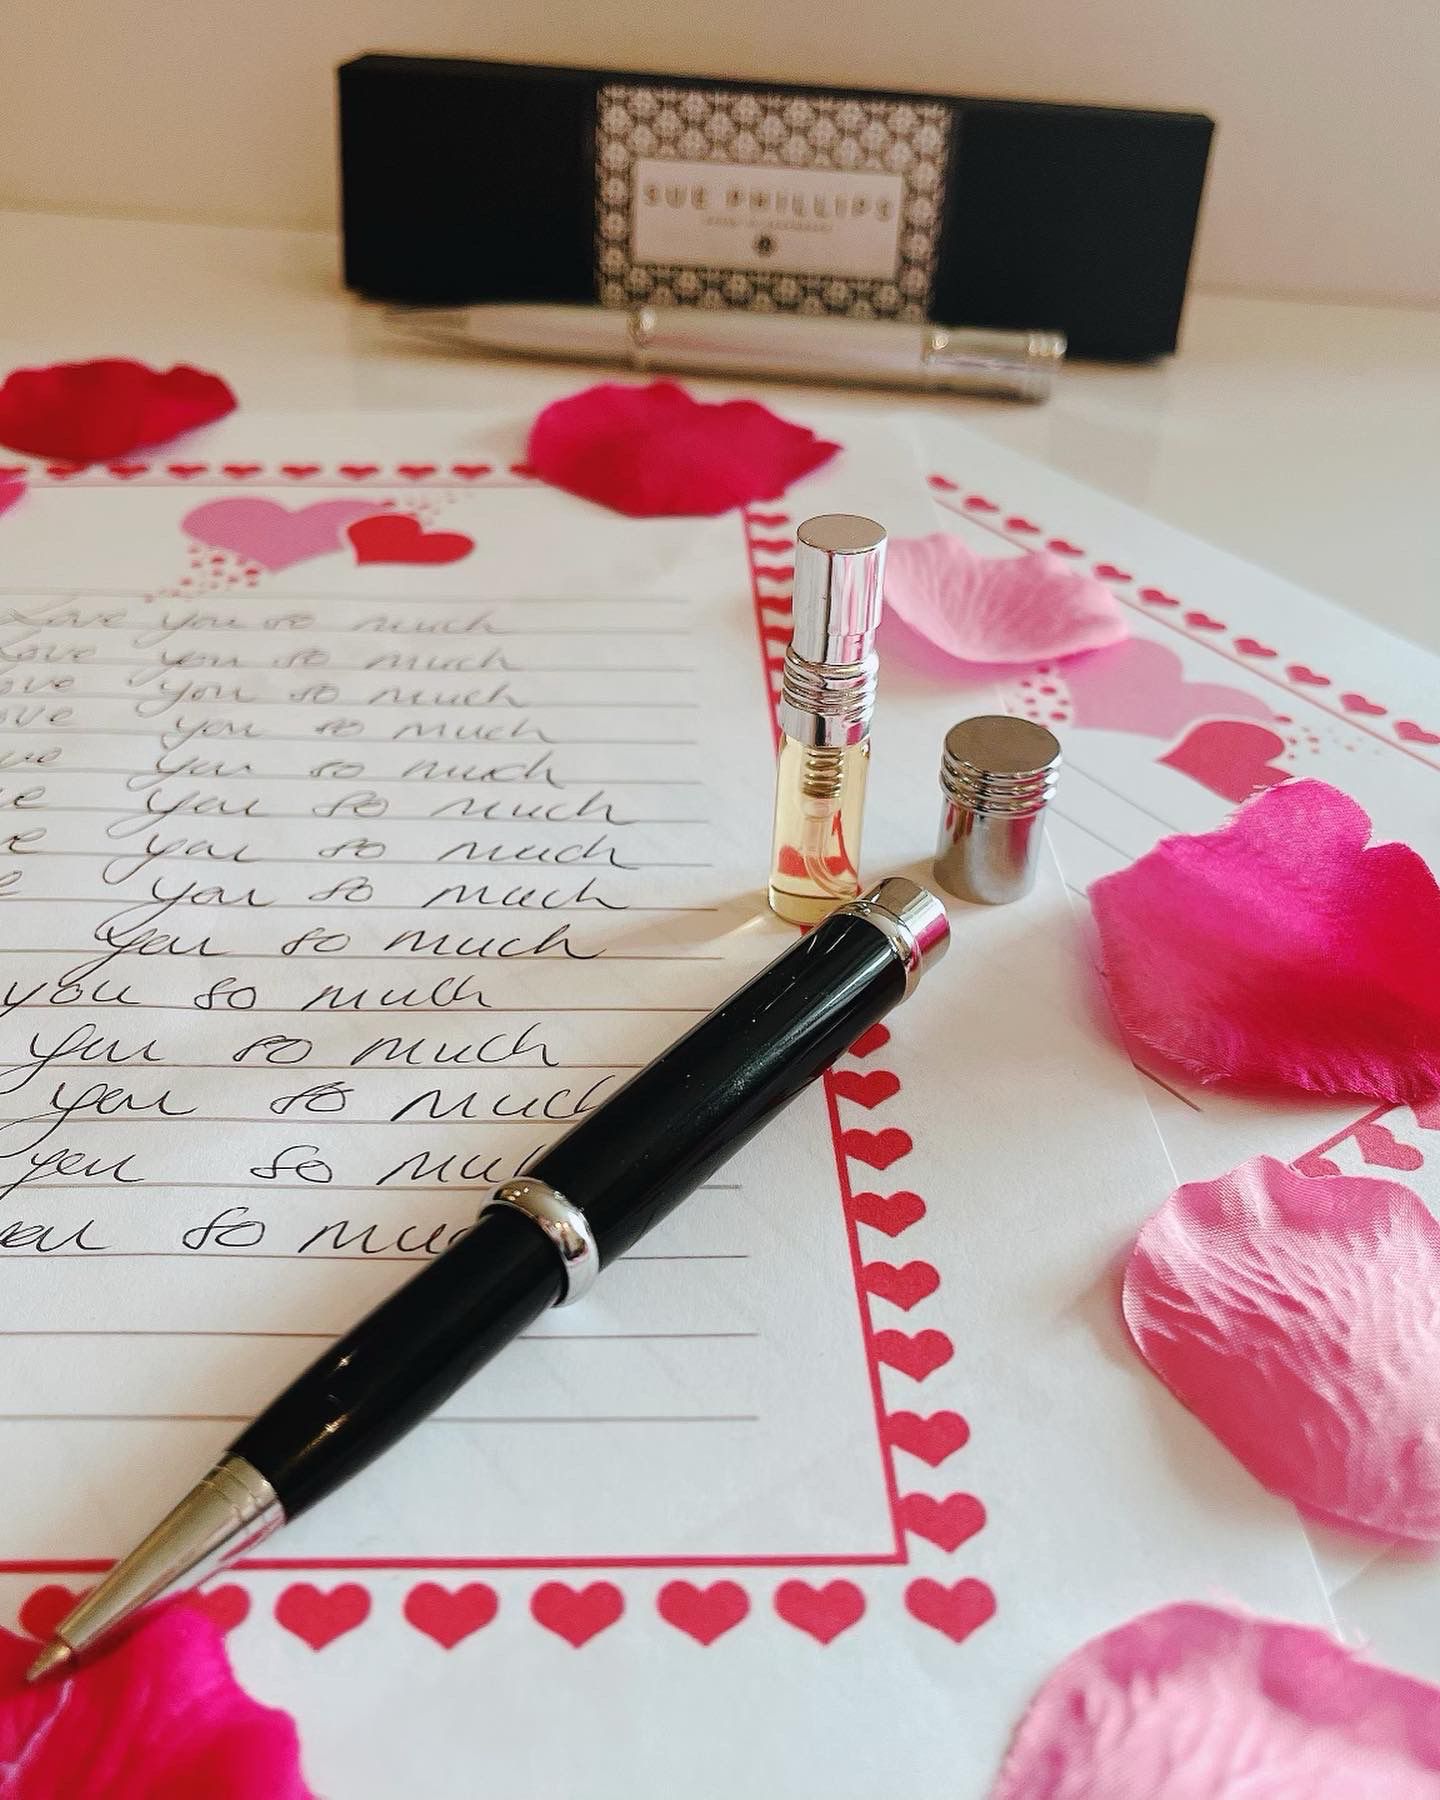 SUE PHILLIPS
Love you so much
Love you so much
ove you so much
ove you so much
ve you so much
e you so much
e you so much
e you so much
you so much
you so much
you so much
you so much
you so muc
you so muc